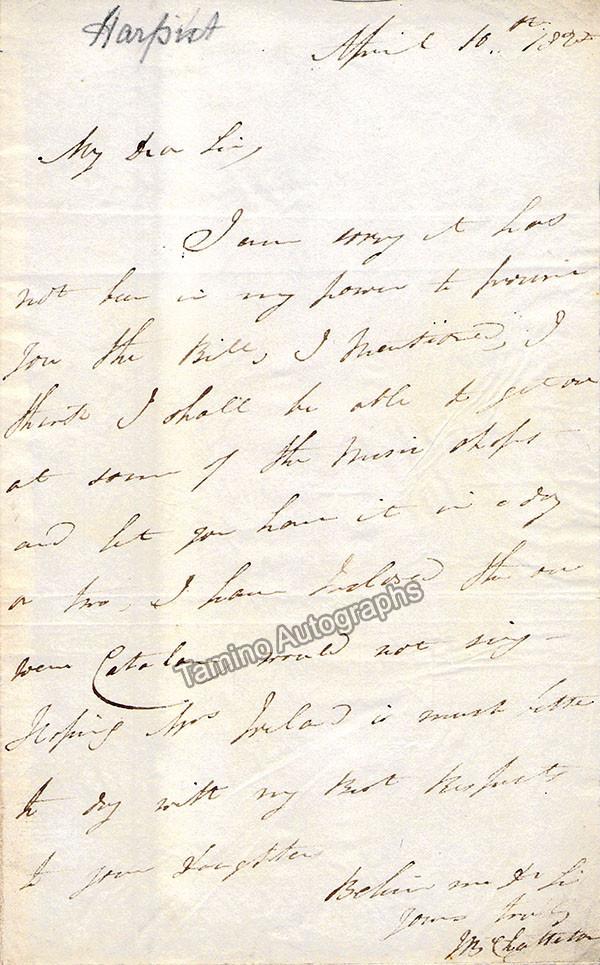 Harpist
April 10th 182
My Dear Sir,
I am sorry it has
not been in my power to procure
you the Bill, I Mentioned, I
think I shall be able to get one
at some of the Music Shops
and let you have it in a day
or two, I have Inclosed the one
were Catalani would not sing -
Hoping Mrs Ireland is much better
to day with my Best Respects
to your Daughter
Believe me Dr Sir
Yours truly
JB Chatterton
Tamino Autographs